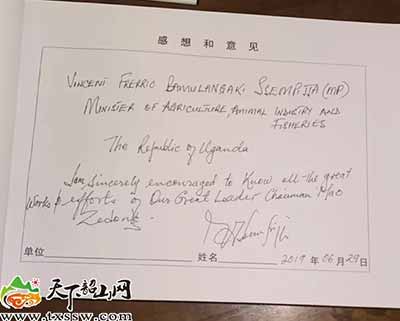 感想和意见
VINCENT FERRERIO BAMULANGAKI SSEMPIJJA (MP)
MINISTER OF AGRICULTURE, ANIMAL INDUSTRY AND
FISHERIES
The Republic of Uganda
I am sincerely encouraged to know all the great
works & efforts of Our Great Leader Chairman Mao
Zedong.
单位 姓名 2019 年 06 月 29 日
天下韶山网
www.txssw.com